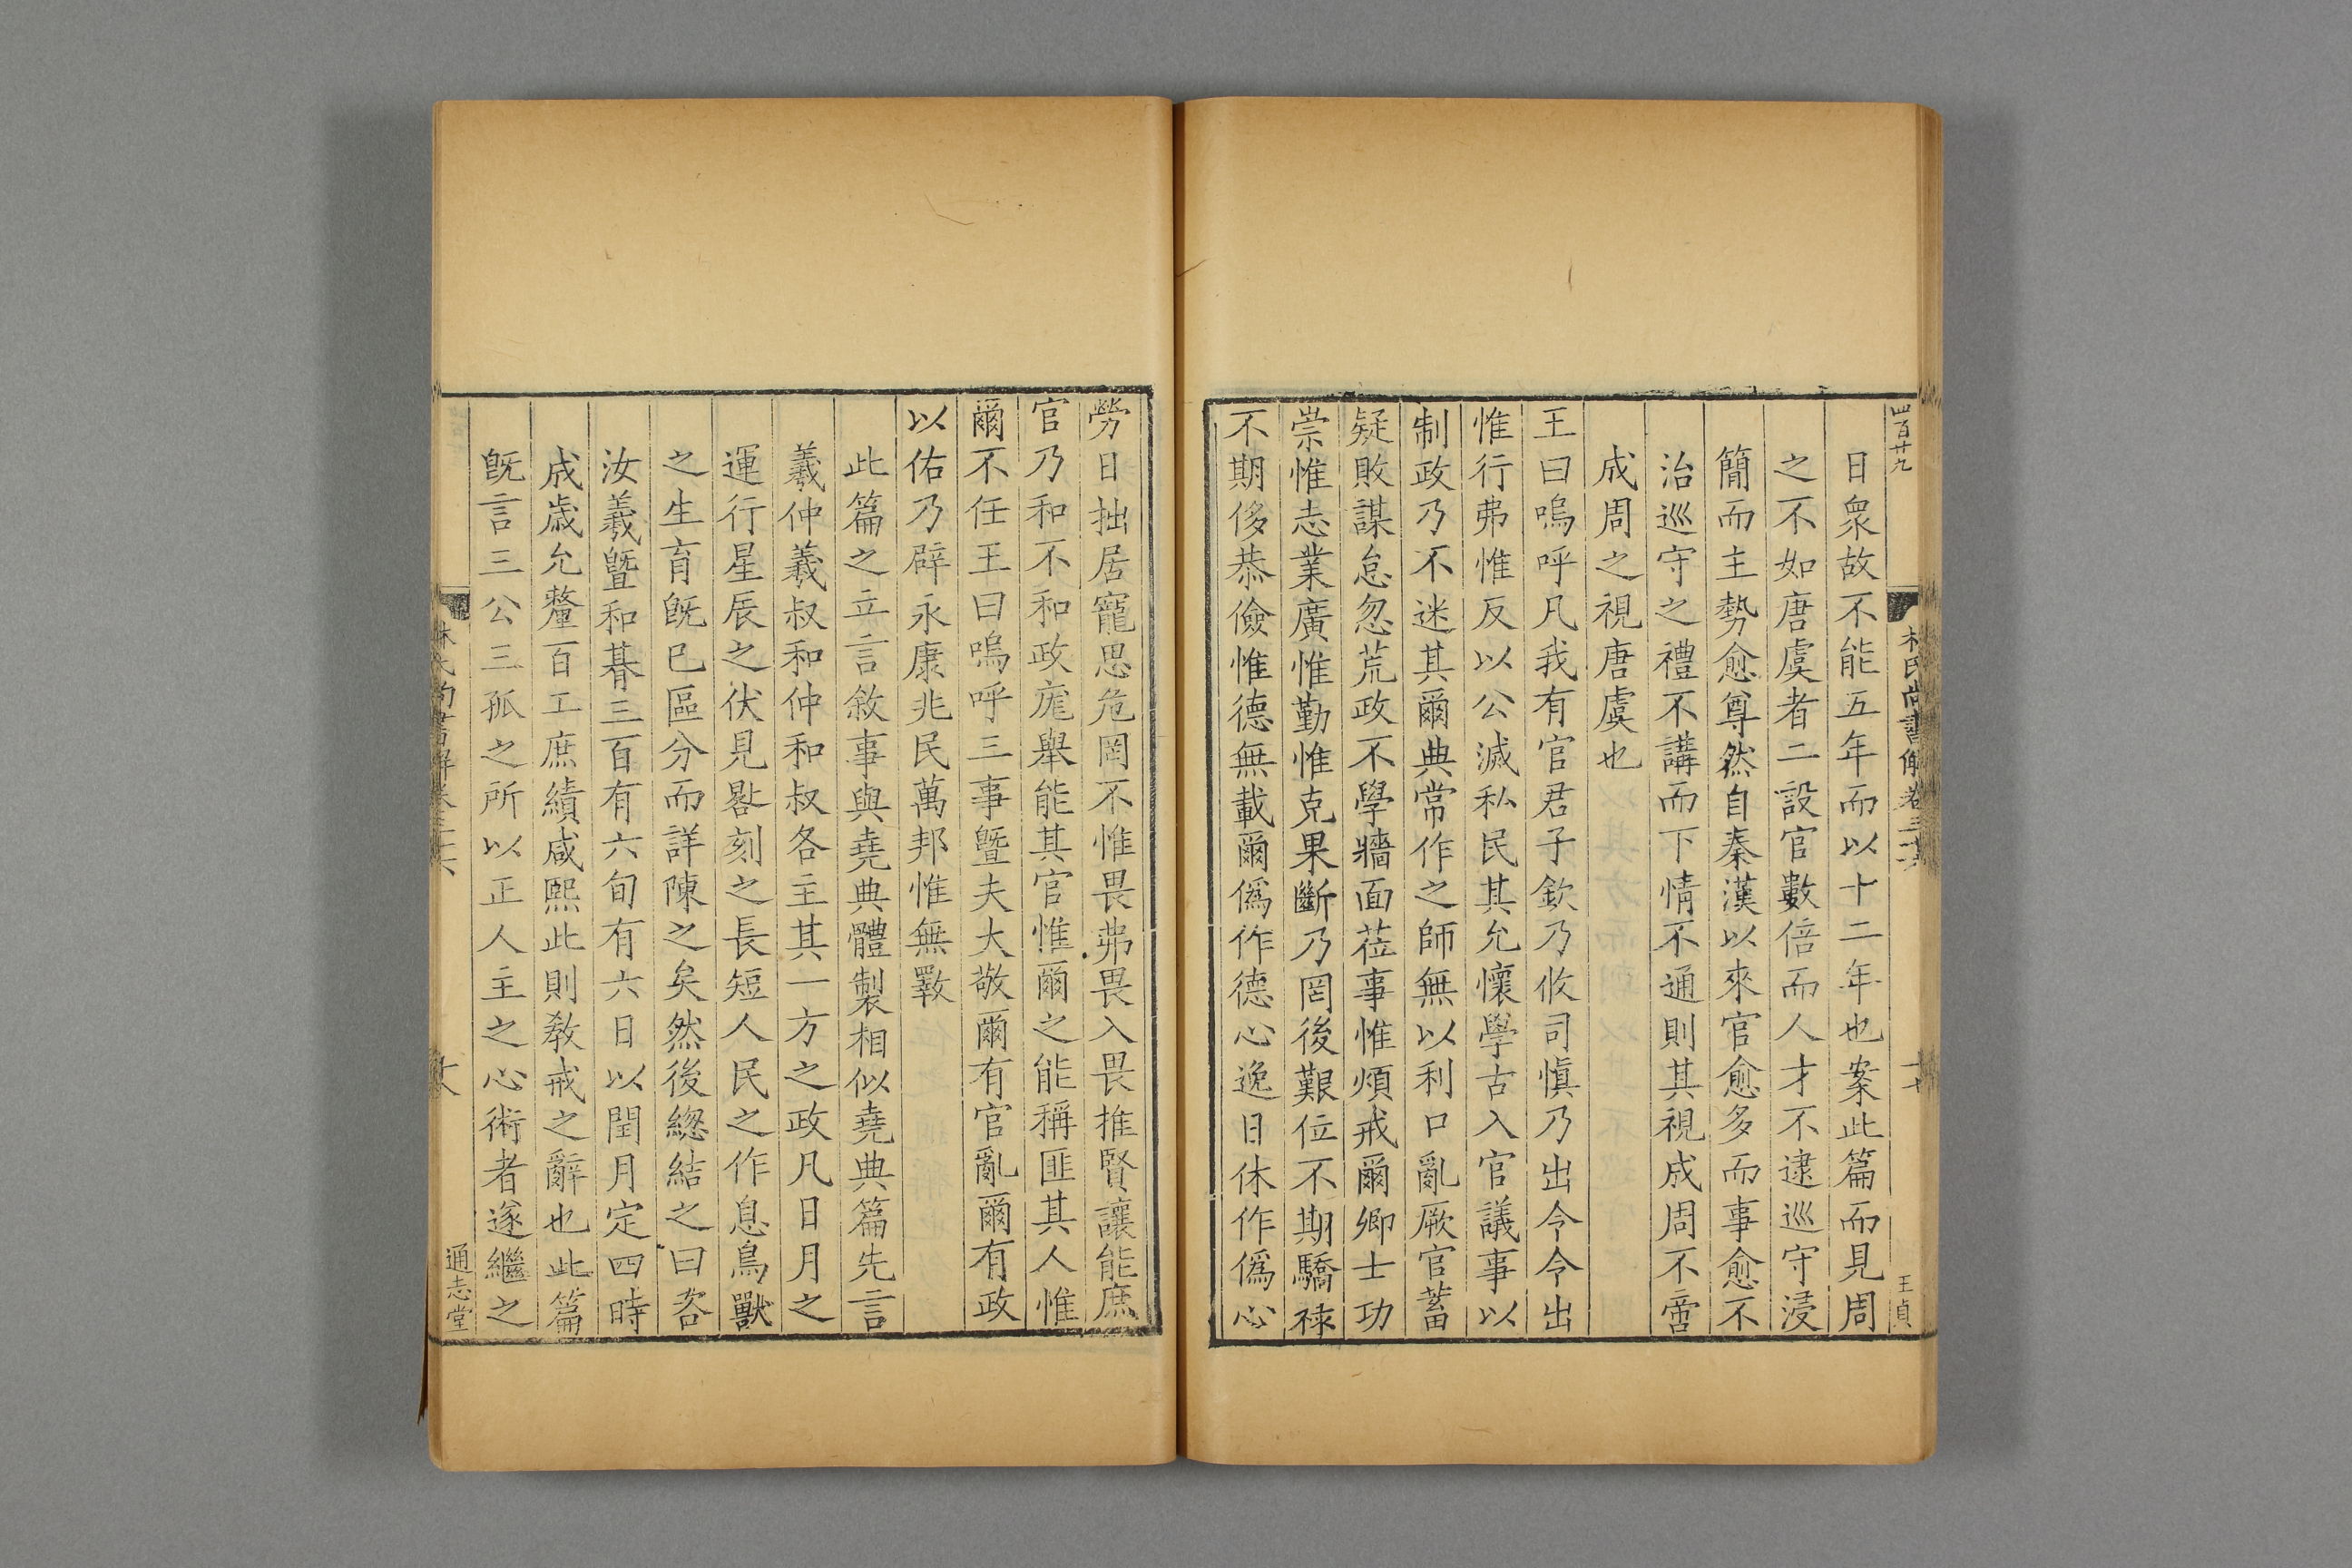 四百廿九
林氏尚書解卷三十六
十七
王貞
日衆故不能五年而以十二年也案此篇而見周
之不如唐虞者二設官數倍而人才不逮巡守浸
簡而主勢愈尊然自秦漢以來官愈多而事愈不
治巡守之禮不講而下情不通則其視成周不啻
成周之視唐虞也
王曰嗚呼凡我有官君子欽乃攸司愼乃出令令出
惟行弗惟反以公滅私民其允懷學古入官議事以
制政乃不迷其爾典常作之師無以利口亂厥官蓄
疑敗謀怠忽荒政不學牆面莅事惟煩戒爾卿士功
崇惟志業廣惟勤惟克果斷乃罔後艱位不期驕祿
不期侈恭儉惟德無載爾僞作德心逸日休作僞心
勞日拙居寵思危罔不惟畏弗畏入畏推賢讓能庶
官乃和不和政厖舉能其官惟爾之能稱匪其人惟
爾不任王曰嗚呼三事曁夫大敬爾有官亂爾有政
以佑乃辟永康兆民萬邦惟無斁
此篇之立言敘事與堯典體製相似堯典篇先言
羲仲羲叔和仲和叔各主其一方之政凡日月之
運行星辰之伏見晷刻之長短人民之作息鳥獸
之生育旣已區分而詳陳之矣然後緫結之曰咨
汝羲曁和朞三百有六旬有六日以閏月定四時
成歲允釐百工庶績咸熙此則敎戒之辭也此篇
旣言三公三孤之所以正人主之心術者遂繼之
林氏尚書解卷三十六
十八
通志堂